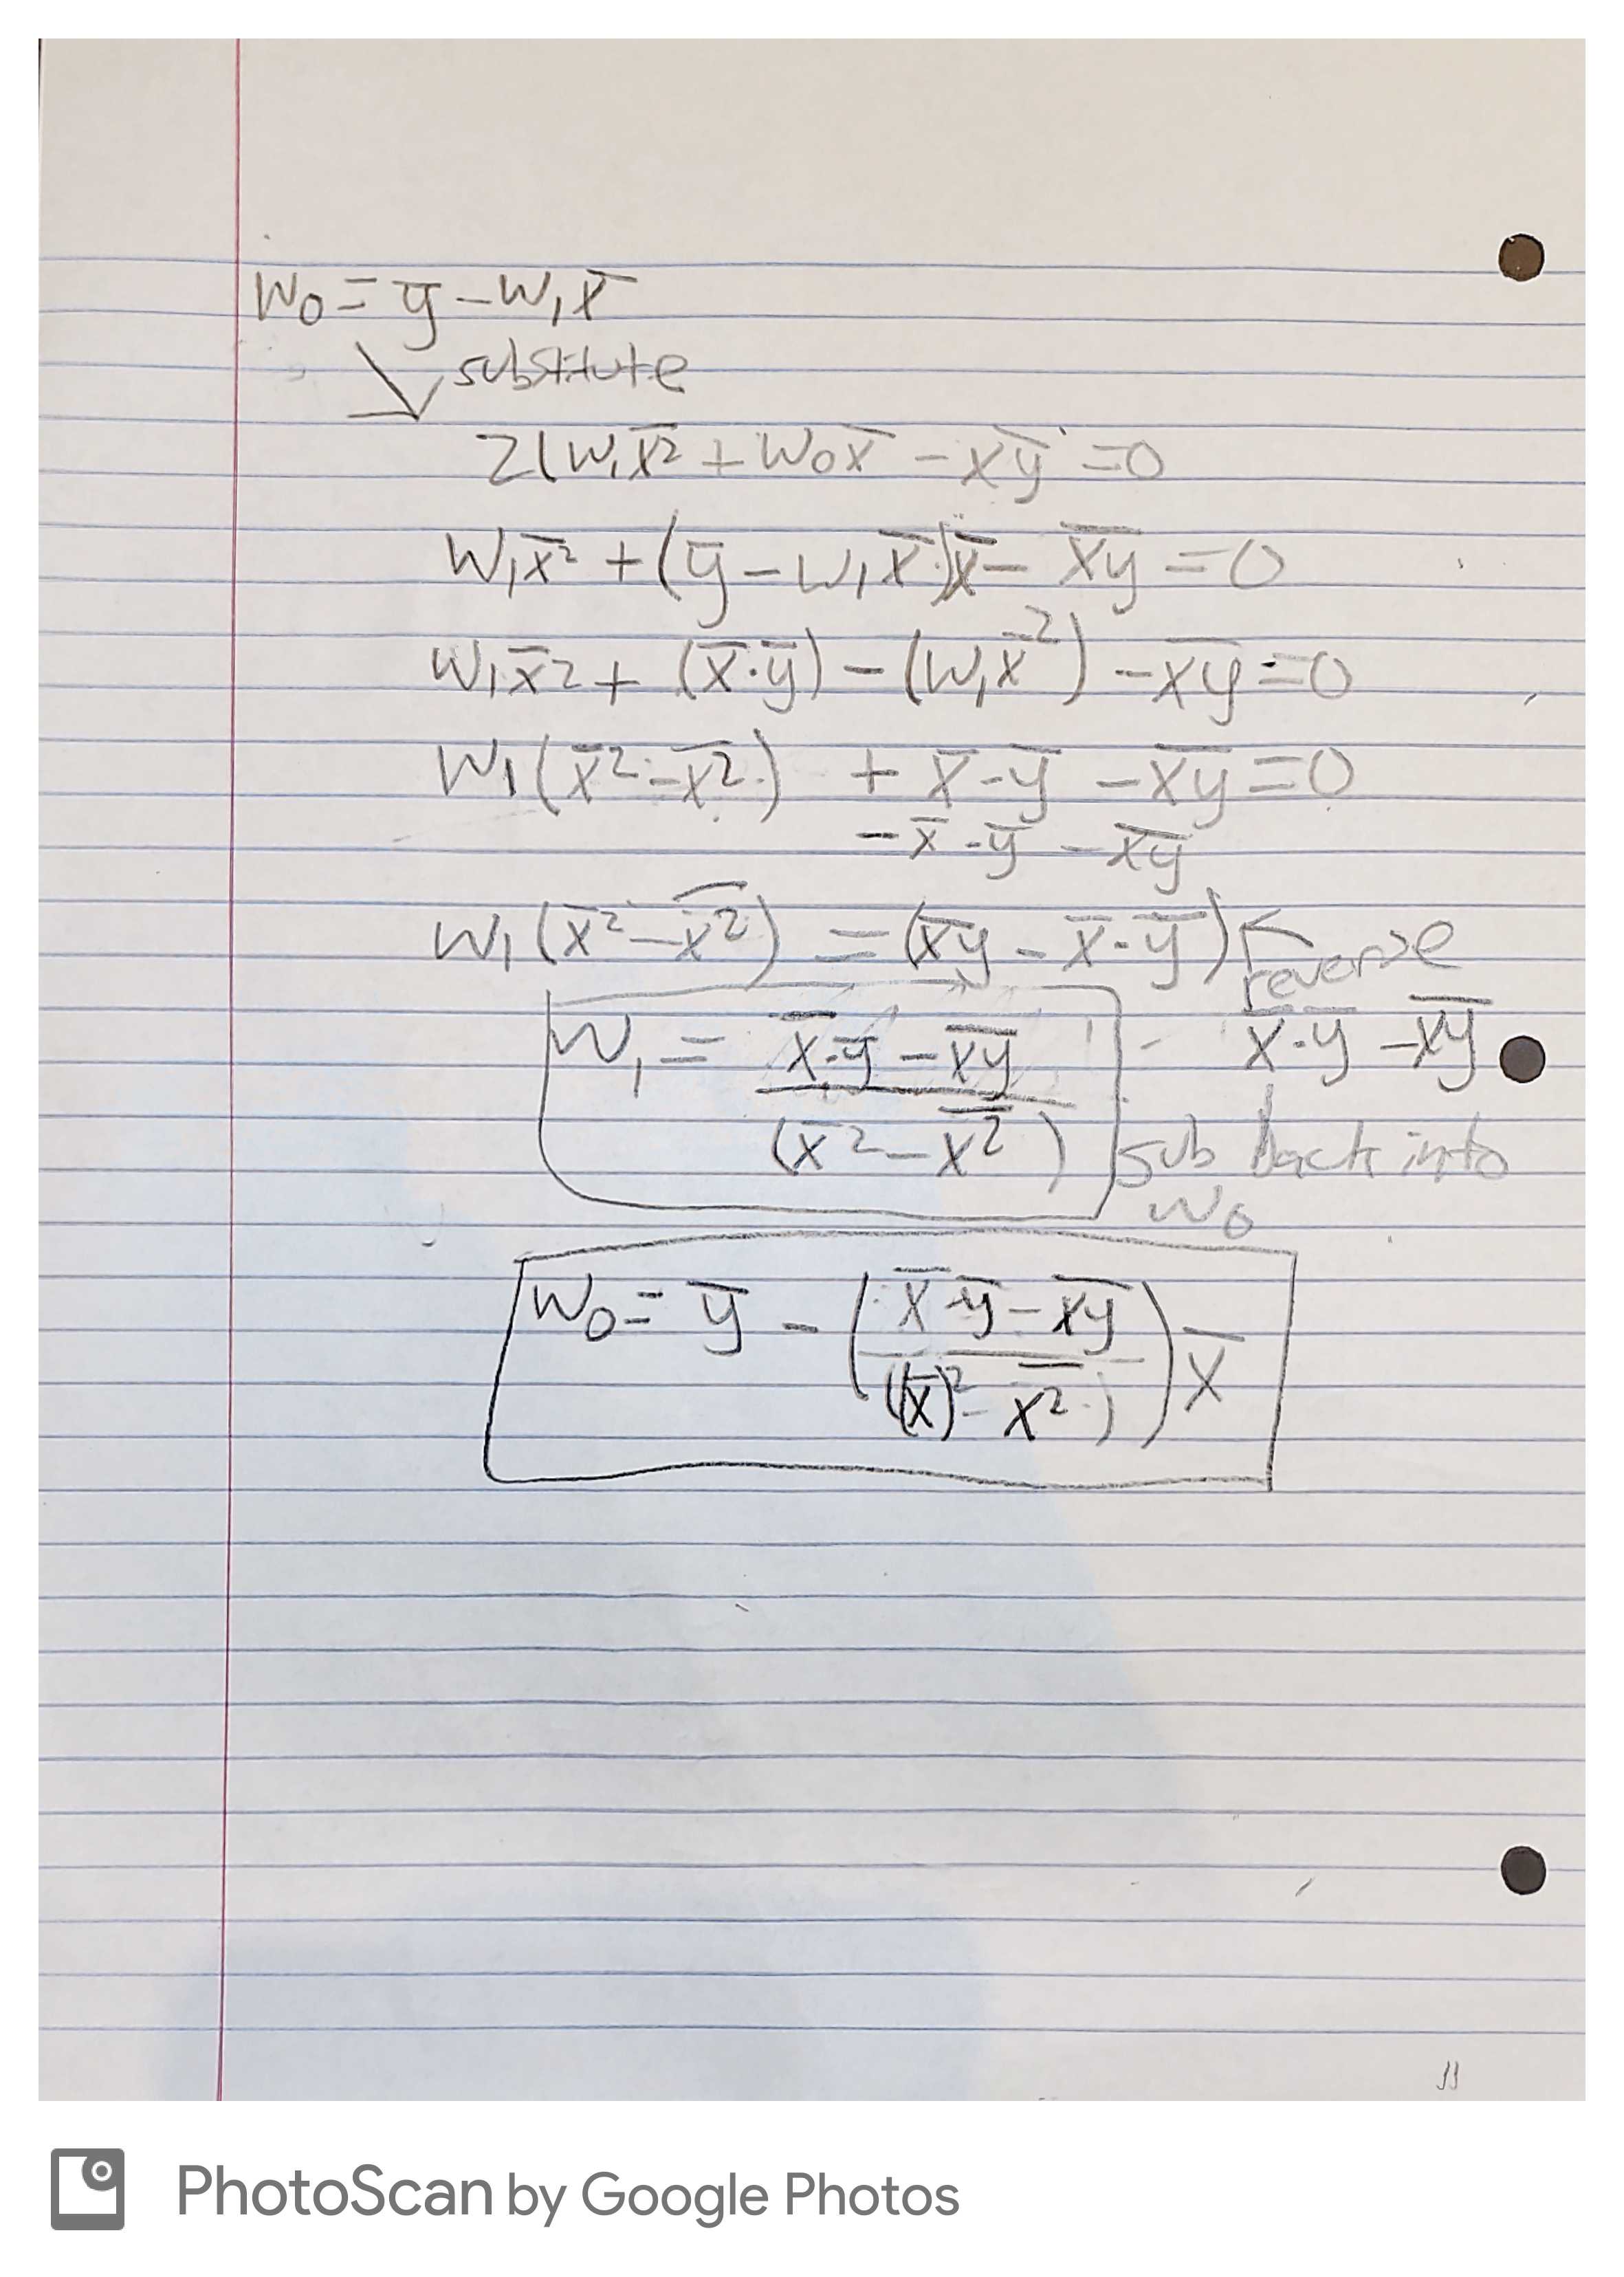 W₀ = y̅ - W₁x̅
substitute
2(W₁x̅² + W₀x̅ - x̅y̅ = 0
W₁x̅² + (y̅ - W₁x̅)x̅ - x̅y̅ = 0
W₁x̅² + (x̅·y̅) - (W₁x̅²) - x̅y̅ = 0
W₁(x̅² - x̅²) + x̅·y̅ - x̅y̅ = 0
- x̅·y̅ - x̅y̅
W₁(x̅² - x̅²) = (x̅y̅ - x̅·y̅)
reverse
W₁ = x̅·y̅ - x̅y̅ / (x̅² - x̅²)
x̅·y̅ - x̅y̅
sub back into
W₀
W₀ = y̅ - (x̅·y̅ - x̅y̅ / ((x̅)² - x̅²)) x̅
PhotoScan by Google Photos